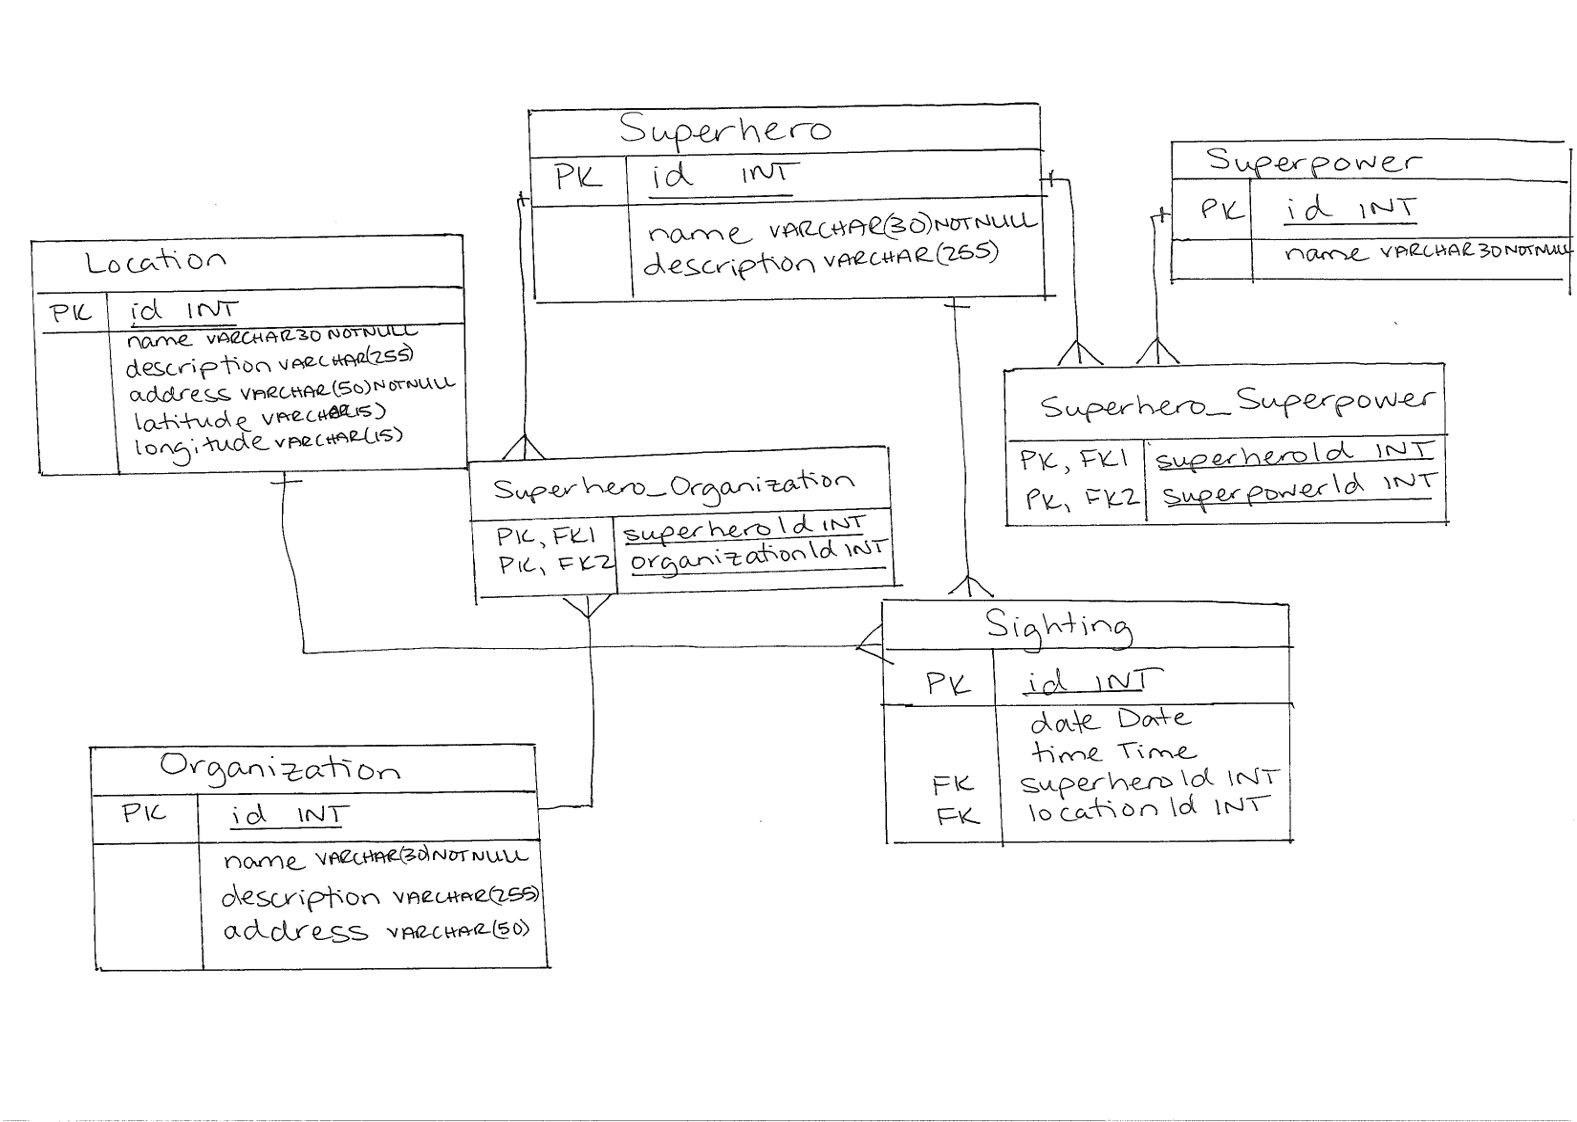 Superhero
PK id INT
name VARCHAR(30)NOTNULL
description VARCHAR(255)
Superpower
PK id INT
name VARCHAR30NOTNULL
Location
PK id INT
name VARCHAR30 NOTNULL
description VARCHAR(255)
address VARCHAR(50)NOTNULL
latitude VARCHAR15)
longitude VARCHAR(15)
Superhero_Superpower
PK, FK1 superheroId INT
PK, FK2 superpowerId INT
Superhero_Organization
PK, FK1 superheroId INT
PK, FK2 organizationId INT
Sighting
PK id INT
date Date
time Time
FK superheroId INT
FK locationId INT
Organization
PK id INT
name VARCHAR(30)NOTNULL
description VARCHAR(255)
address VARCHAR(50)